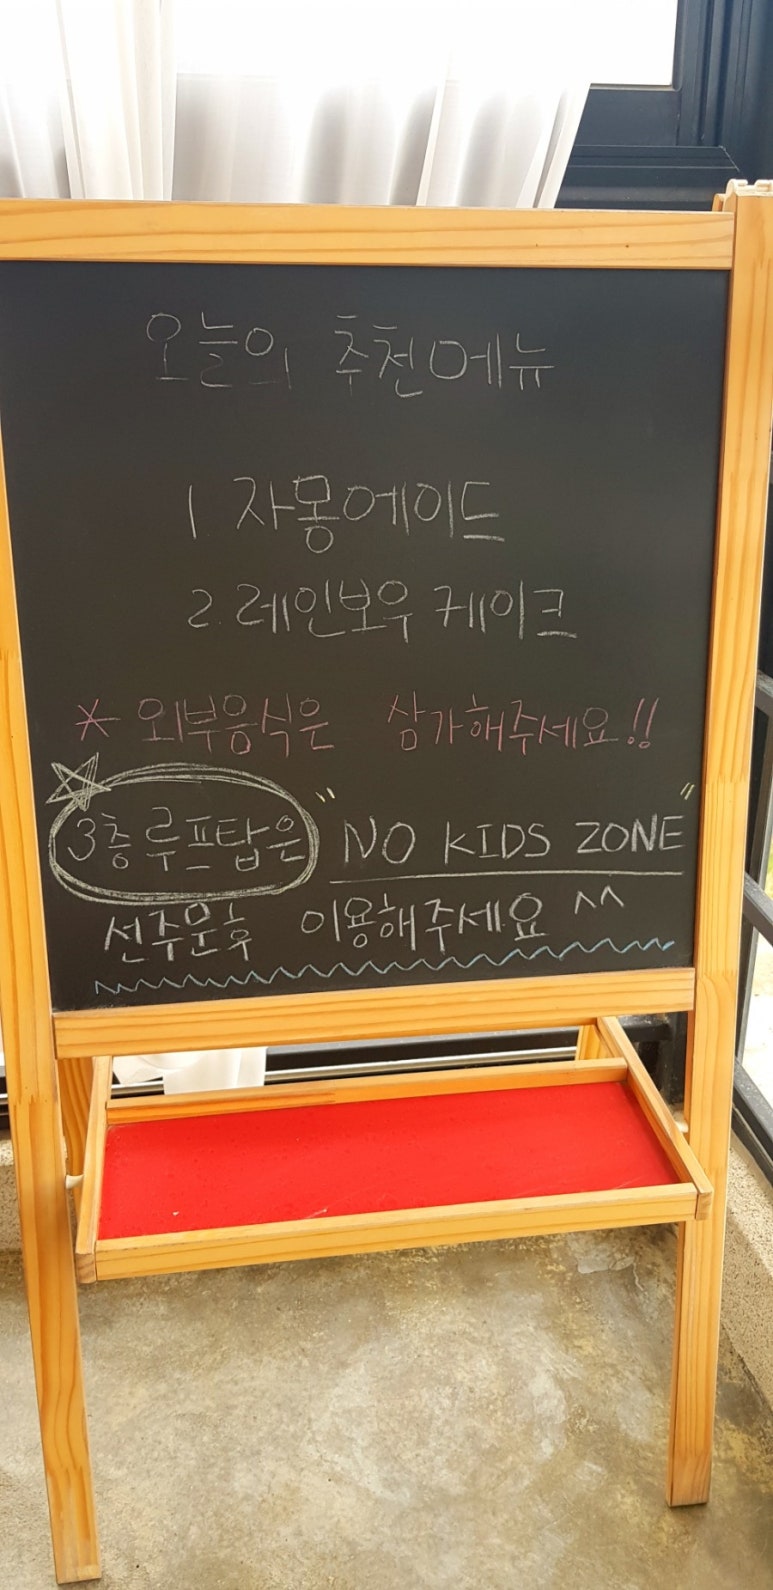 오늘의 추천메뉴
1. 자몽에이드
2. 레인보우 케이크
* 외부음식은 삼가해주세요!!
☆ 3층 루프탑은 "NO KIDS ZONE"
선주문후 이용해주세요 ^^